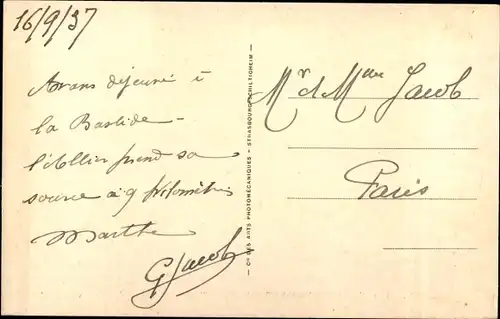 16/9/37
Avons déjeuné à
la Bastide -
l'Allier prend sa
source à 9 kilomètres
Marthe
G Jacob
Cie DES ARTS PHOTOMÉCANIQUES - STRASBOURG-SCHILTIGHEIM
Mr & Mme Jacob
Paris